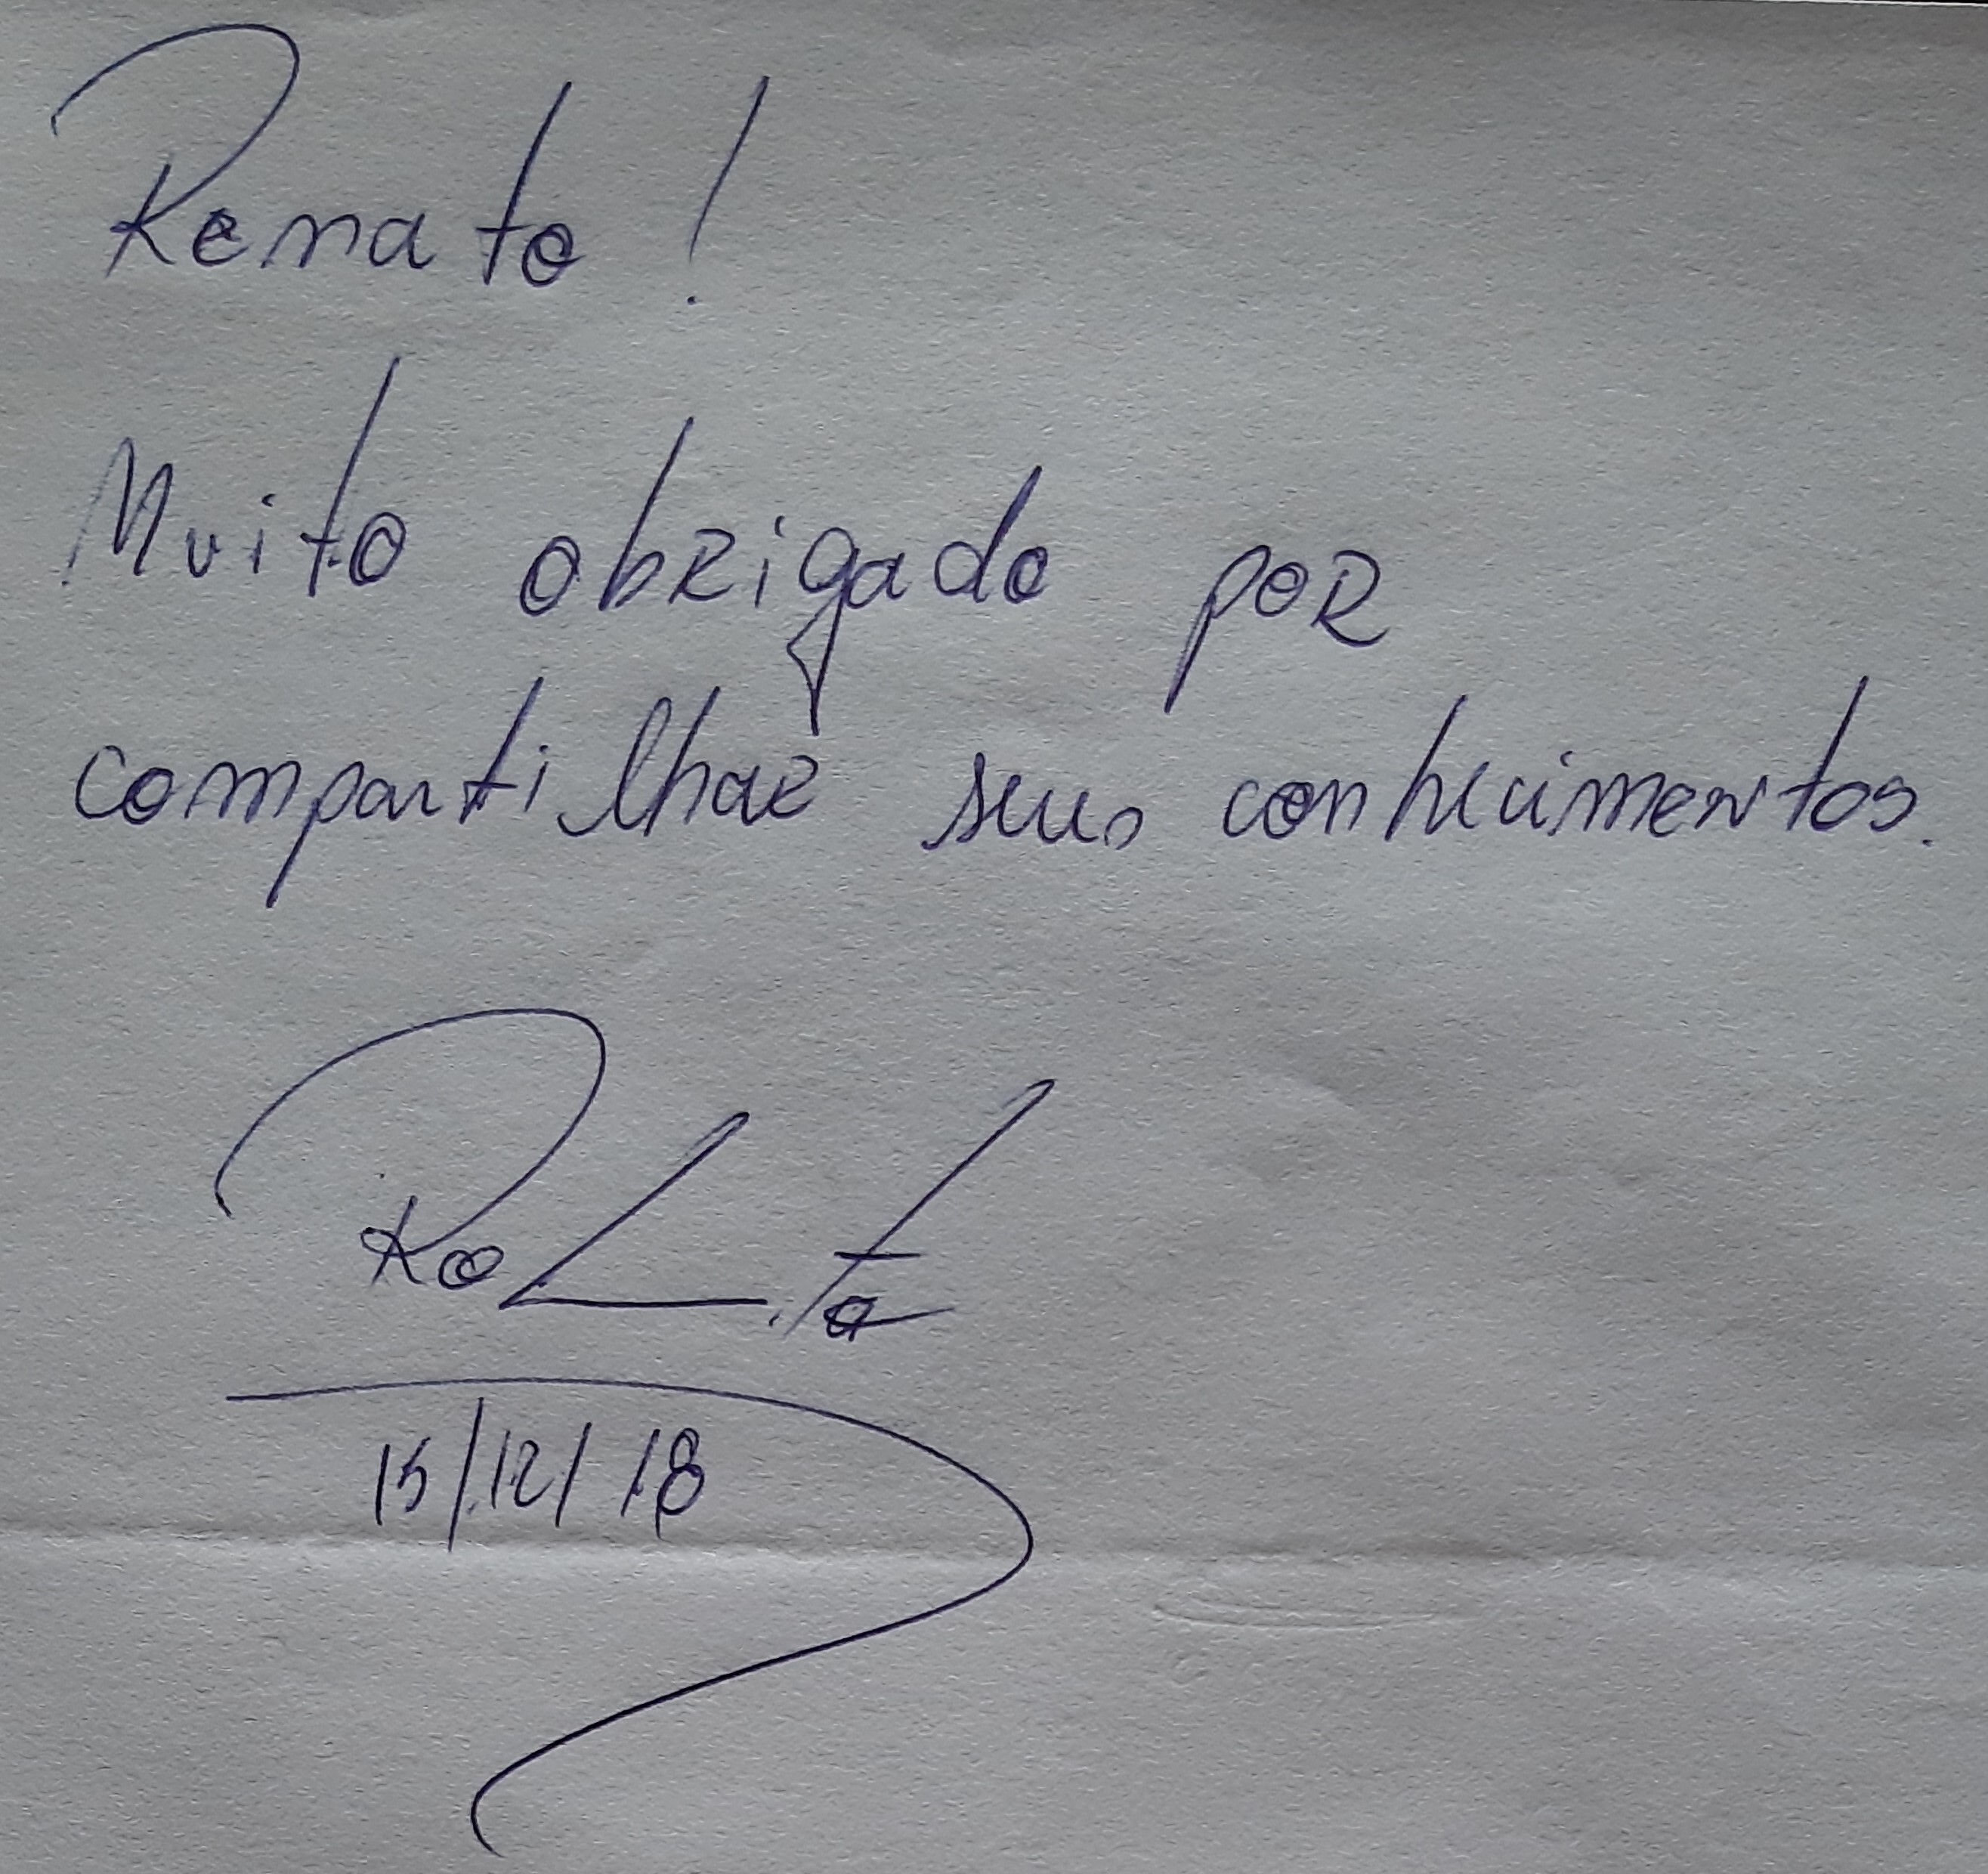 Renato!
Muito obrigado por
compartilhar seus conhecimentos.
15/12/18